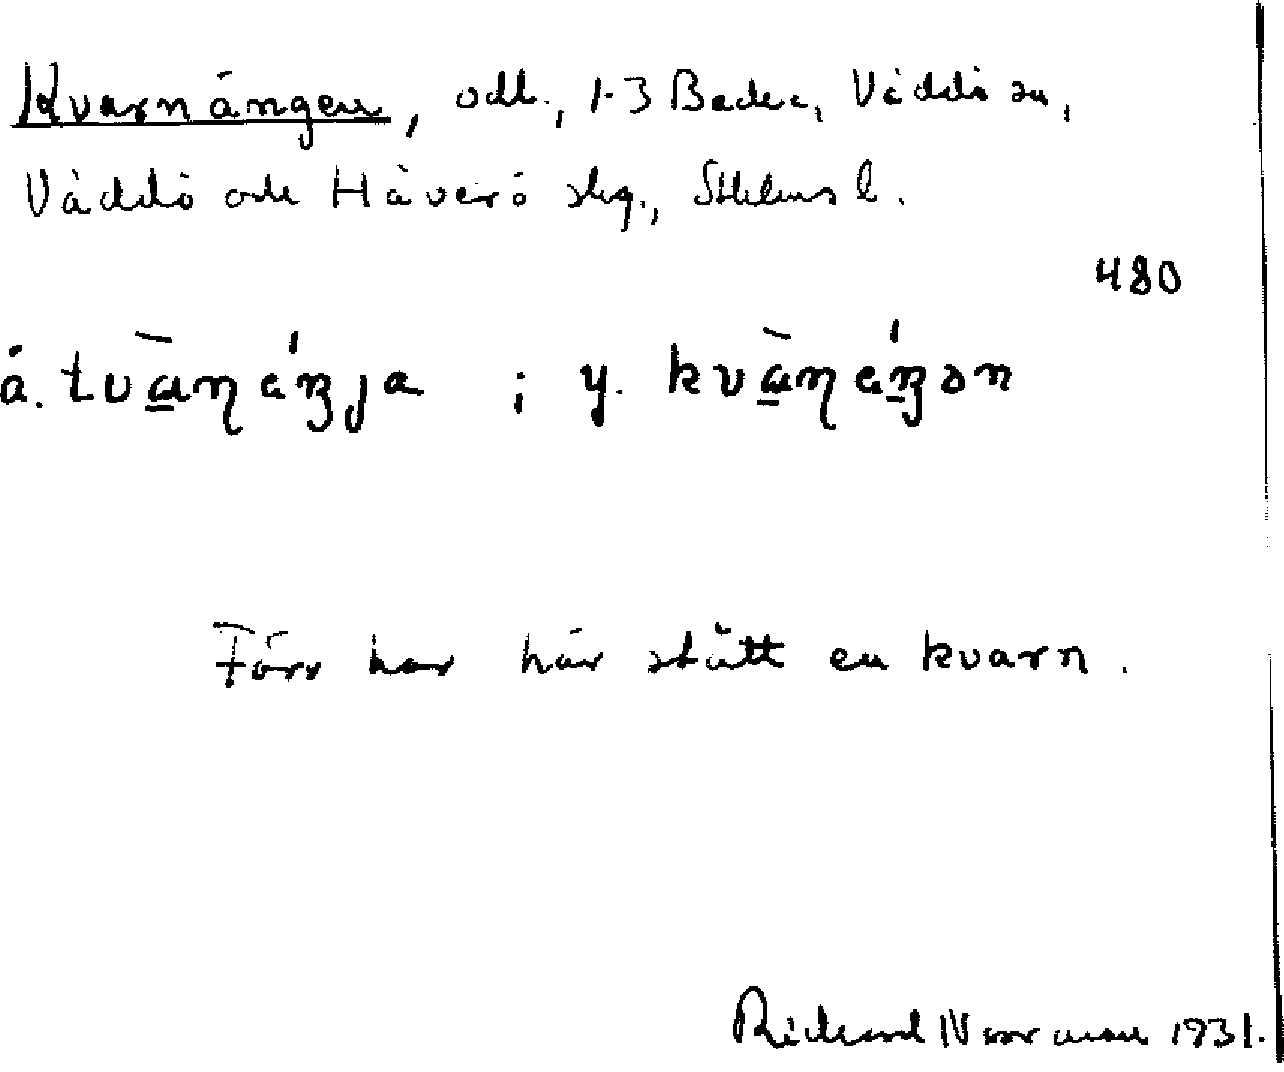 Kvarnängen, odl., 1-3 Backa, Väddö sn,
Väddö och Häverö skg., Sthlms l.
480
ä. tvàṉäŋja ; y. kvàṉäŋən
Förr har här stått en kvarn.
Richard Norrman 1931.